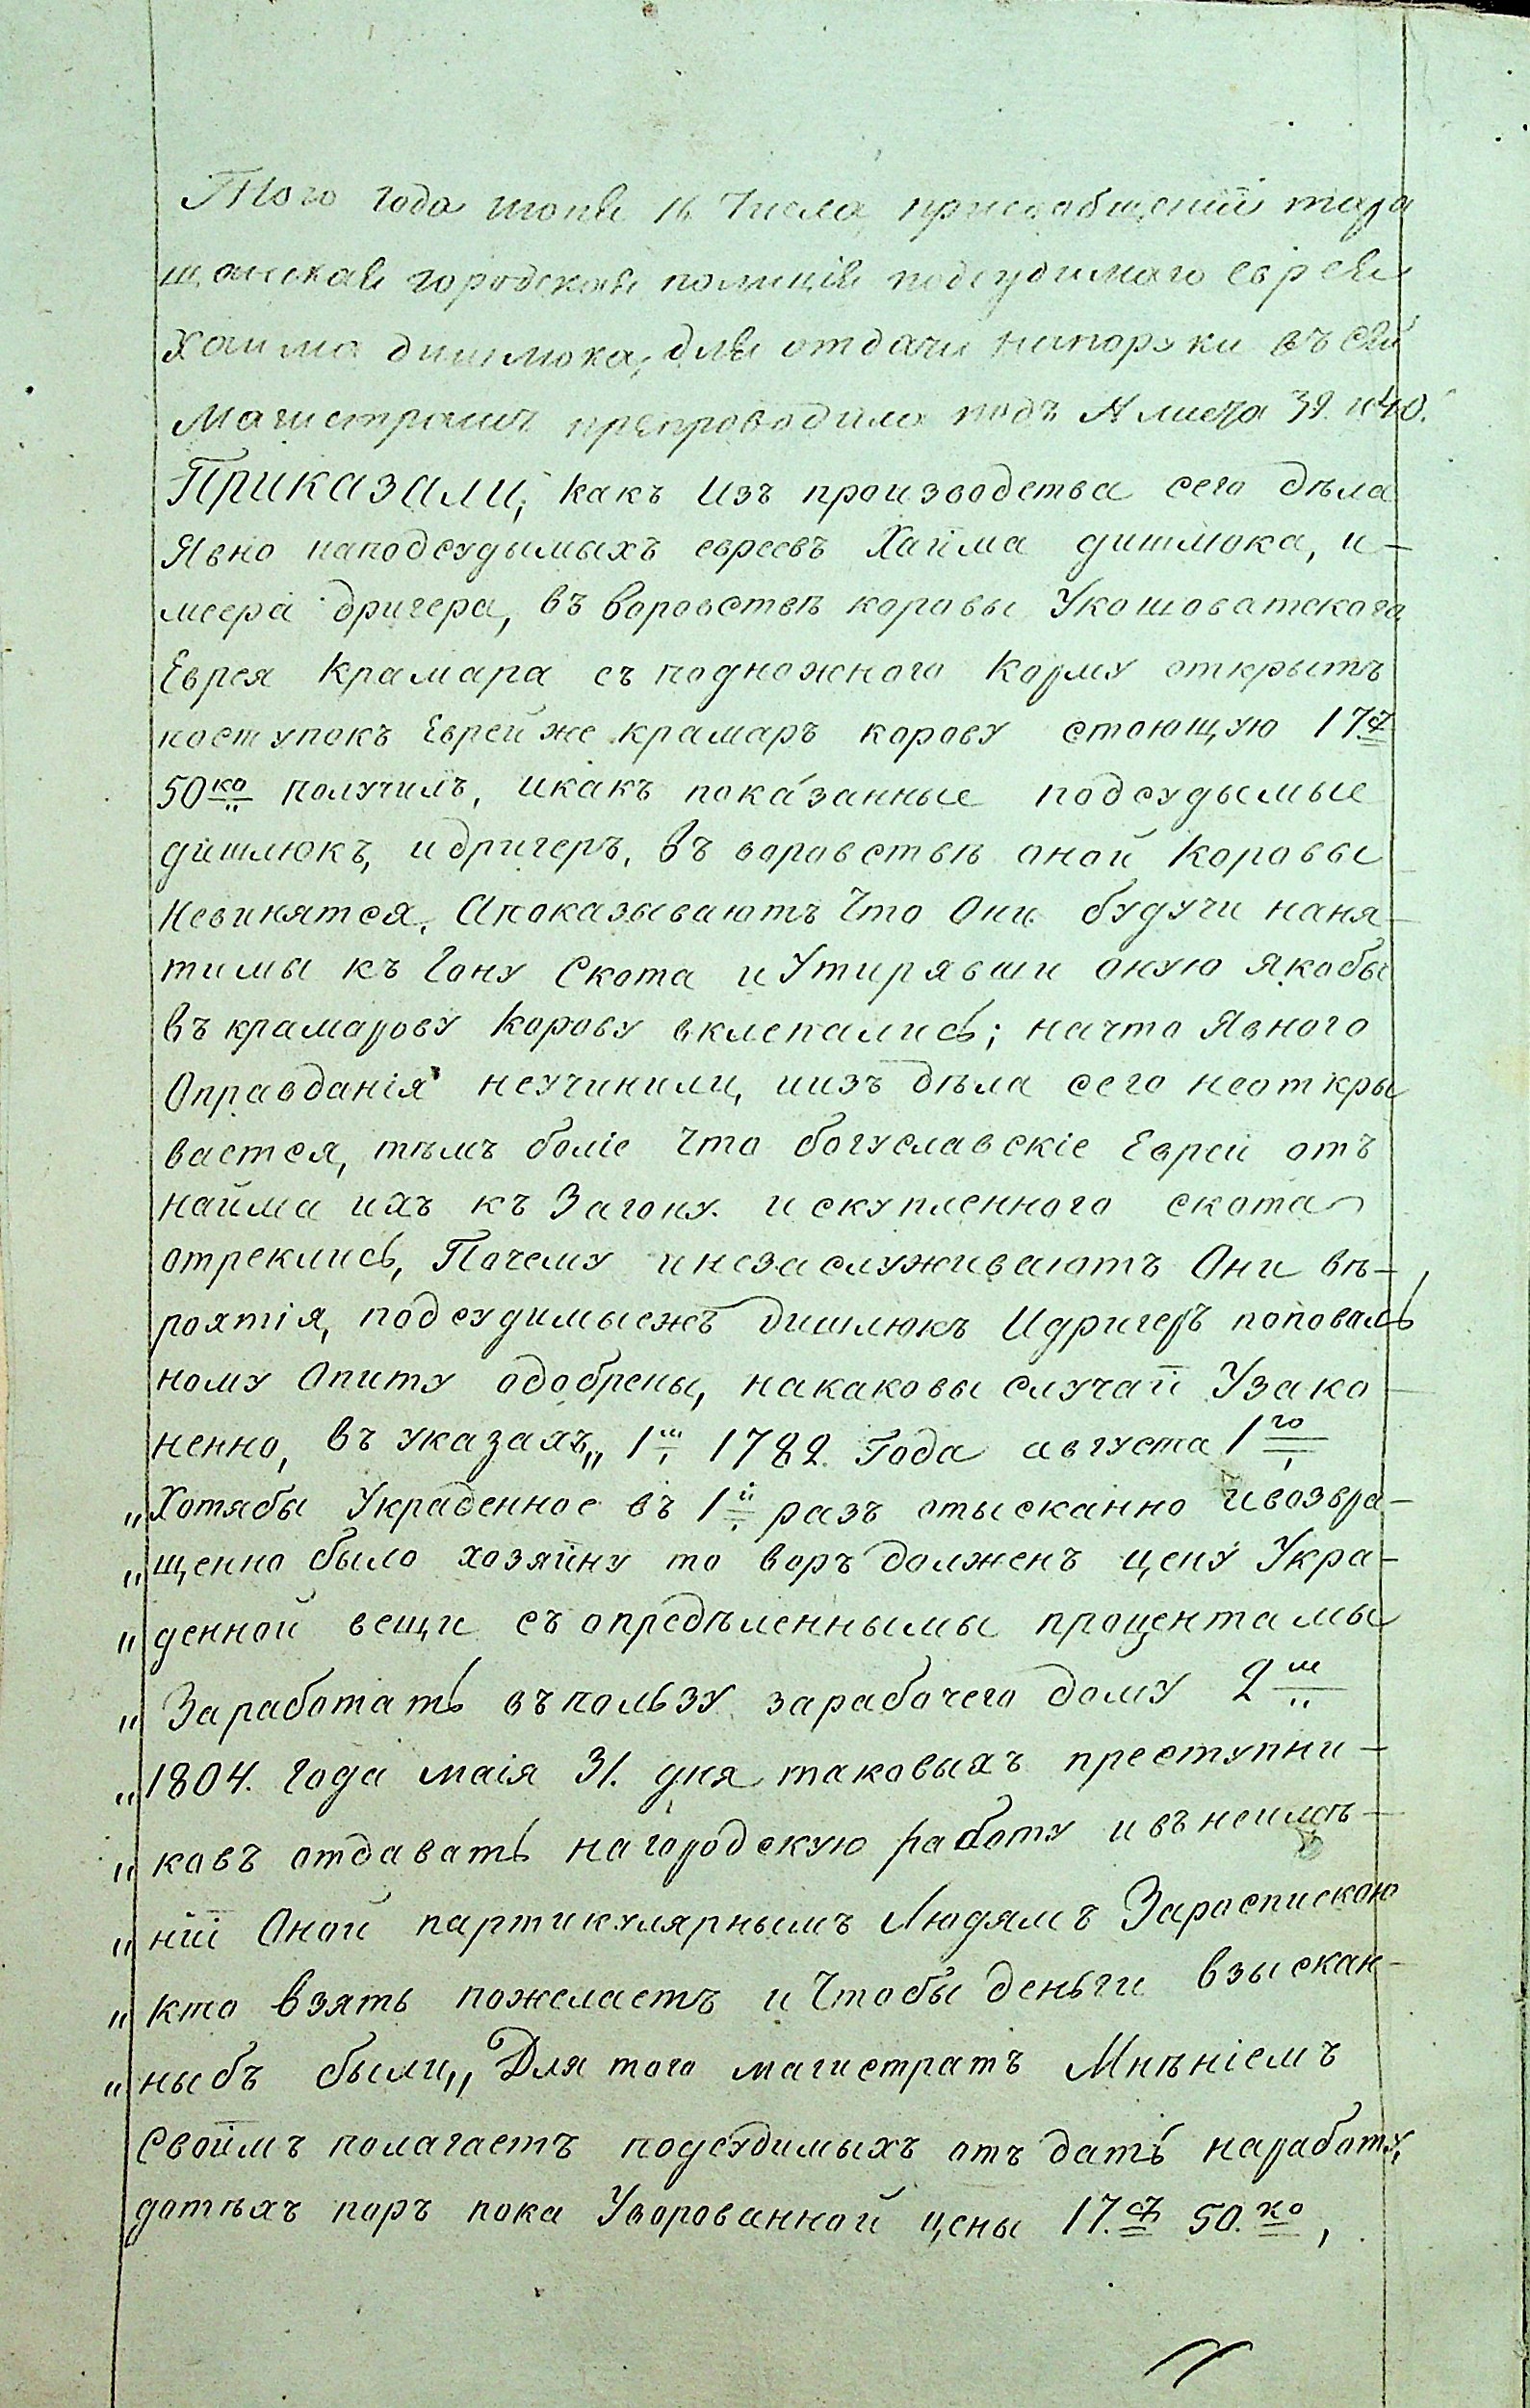 Того года июня 16 Числа, присообщеніи тара
щанская городская полиція подсудимаго еврея
Хаима дишлюка, для отдачи напоруки въ сей
Магистратъ препроводила подъ № листа 39. и 40.
Приказали, какъ Изъ производства сего дѣла
Явно наподсудымыхъ евреевъ Хаима дишлюка, и-
меера дригера, въ воровствѣ коровы Укошоватского
Еврея Крамара съ подножного Корму открытъ
поступокъ Еврейже крамаръ корову стоющую 17 р
50 ко получилъ, икакъ показанные подсудымые
дишлюкъ, идригеръ, въ воровствѣ оной Коровы
Невинятся, Апоказываютъ Что Они будучи наня-
тимы къ Гону Скота иУтирявши оную якобы
въ крамарову Корову вклепались; начто Явного
Оправданія неучинили, иизъ дѣла сего неоткры
вается, тѣмъ боліе Что богуславскіе Евреи отъ
найма ихъ къ Загону искупленного скота
отреклись, Почему инезаслуживаютъ Они вѣ-
роятія, подсудимыежъ дишлюкъ Идригеръ поповаль
ному Опиту одобрены, накаковы случаи Узако-
ненно, въ указахъ,, 1м 1782. Года августа 1го
„Хотябы Украденное въ 1й разъ отысканно ивозвра-
„щенно было хозяину то воръ долженъ цену Укра-
„денной вещи съ определеннымы процентамы
„Заработать въпользу зарабочего дому 2м
„1804. Года маія 31. дня таковыхъ преступни-
„ковъ отдавать нагородскую работу ивънеимѣ-
„ніи Оной партикулярнымъ Людямъ Зароспискою
„кто взять пожелаетъ и Чтобы деньги взыскан-
„ныбъ были,, Для того магистратъ Мнѣніемъ
Своимъ полагаетъ подсудимыхъ отъ дать наработу,
дотѣхъ поръ пока Уворованной цены 17. р 50. ко,